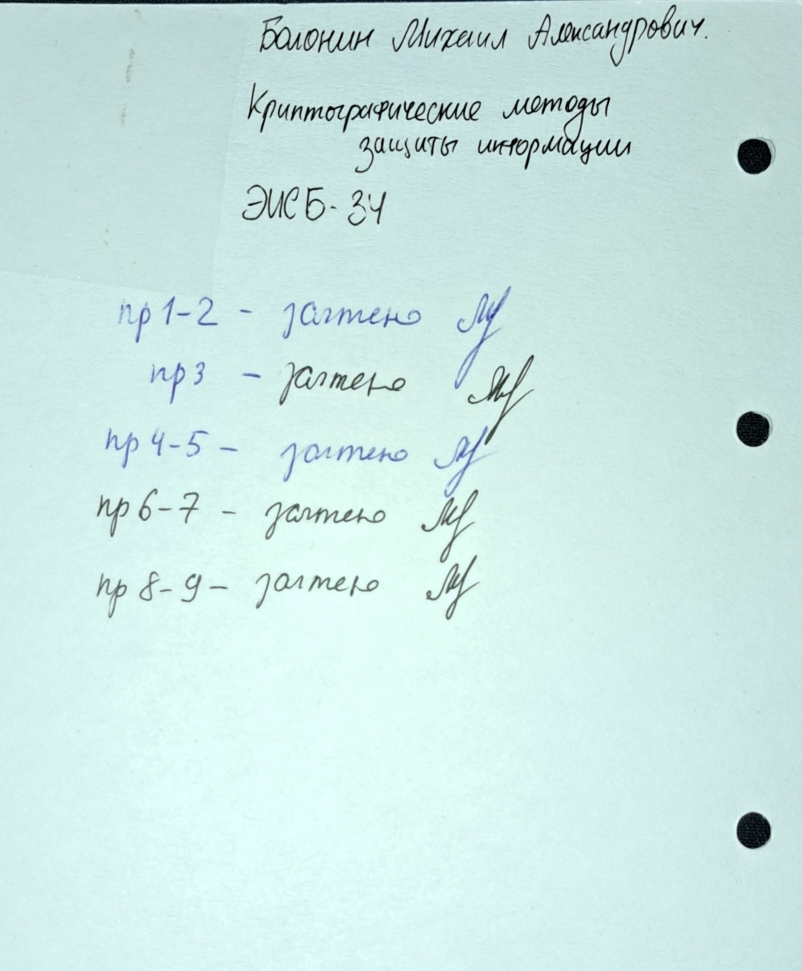 Болонин Михаил Александрович.
Криптографические методы
защиты информации
ЭИСБ-34
пр 1-2 - зачтено
пр 3 - зачтено
пр 4-5 - зачтено
пр 6-7 - зачтено
пр 8-9 - зачтено